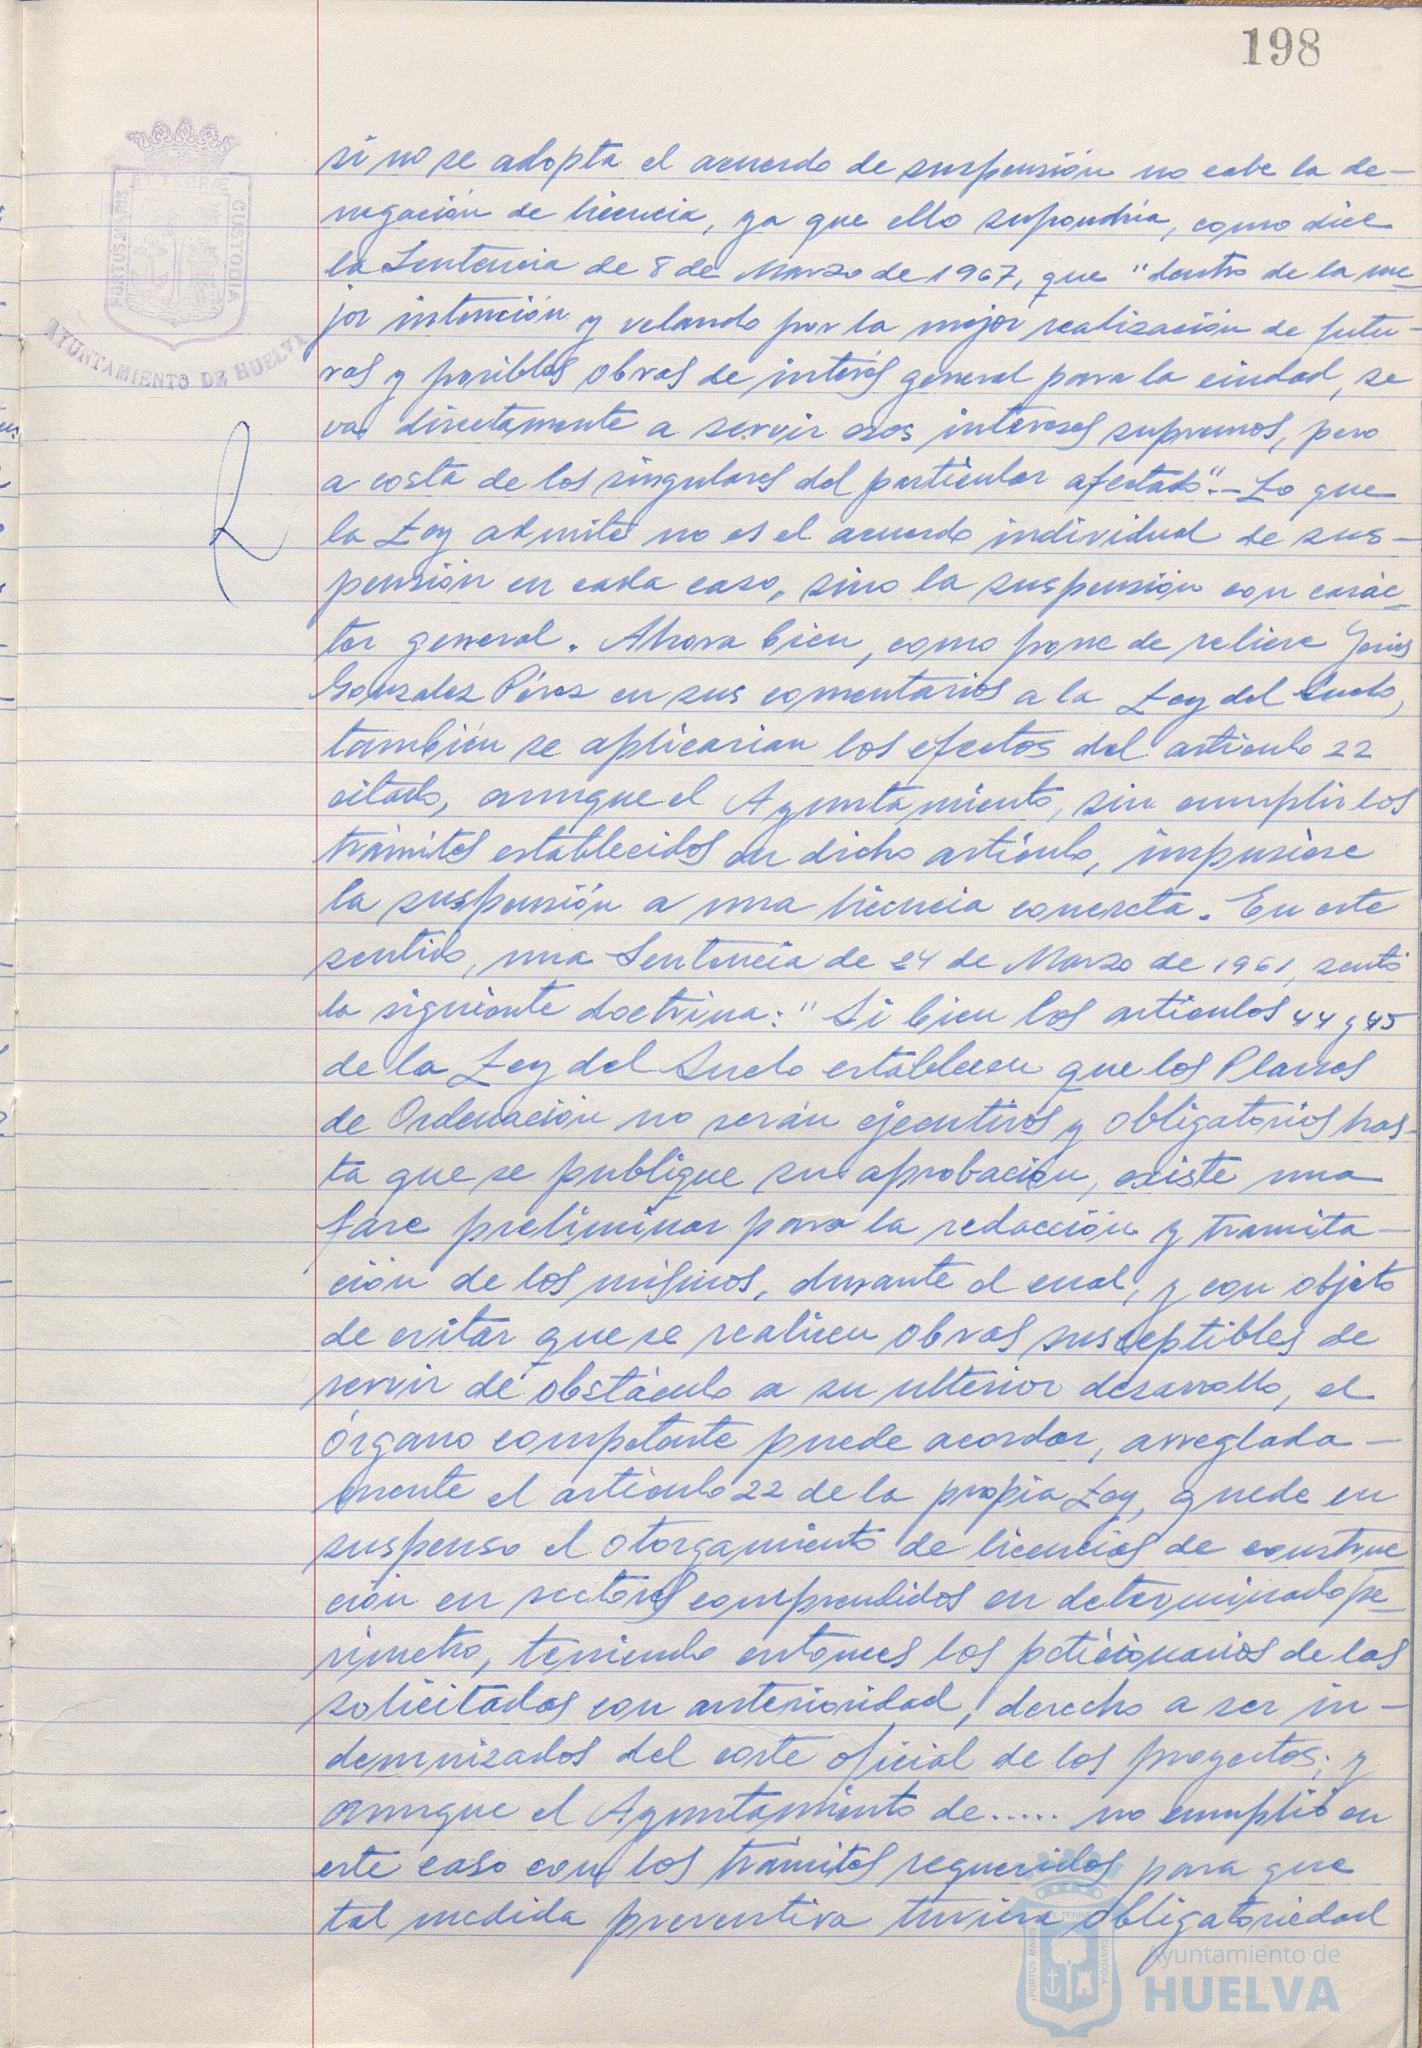 198
PORTUS MARIS
ET TERRÆ
CUSTODIA
AYUNTAMIENTO DE HUELVA
si no se adopta el acuerdo de suspensión no cabe la de-
negación de licencia, ya que ello supondría, como dice
la Sentencia de 8 de Marzo de 1967, que "dentro de la me-
jor intención y velando por la mejor realización de futu-
ras y posibles obras de interés general para la ciudad, se
va directamente a servir esos intereses supremos, pero
a costa de los singulares del particular afectado".- Lo que
la Ley admite no es el acuerdo individual de sus-
pensión en cada caso, sino la suspensión con carác-
ter general. Ahora bien, como pone de relieve Jesús
Gonzalez Pérez en sus comentarios a la Ley del Suelo,
también se aplicarian los efectos del articulo 22
citado, aunque el Ayuntamiento, sin cumplir los
trámites establecidos en dicho artículo, impusiere
la suspensión a una licencia concreta. En este
sentido, una Sentencia de 24 de Marzo de 1961, sentó
la siguiente doctrina: "Si bien los artículos 44 y 45
de la Ley del Suelo establecen que los Planes
de Ordenación no serán ejecutivos y obligatorios has-
ta que se publique su aprobación, existe una
fase preliminar para la redacción y tramita-
ción de los mismos, durante el cual, y con objeto
de evitar que se realicen obras susceptibles de
servir de obstáculo a su ulterior desarrollo, el
órgano competente puede acordar, arreglada-
mente el artículo 22 de la propia Ley, quede en
suspenso el otorgamiento de licencias de construc
ción en sectores comprendidos en determinado pe-
rímetro, teniendo entonces los peticionarios de las
solicitadas con anterioridad, derecho a ser in-
demnizados del coste oficial de los proyectos; y
aunque el Ayuntamiento de..... no cumplió en
este caso con los trámites requeridos para que
tal medida preventiva tuviera obligatoriedad
Ayuntamiento de
HUELVA